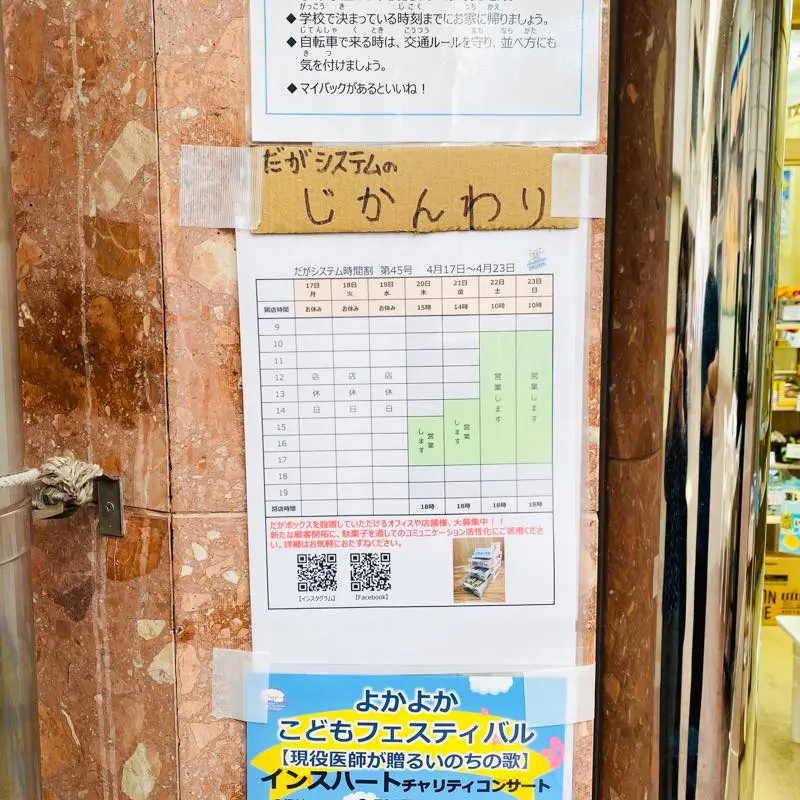 ◆学校で決まっている時刻までにお家に帰りましょう。
◆自転車で来る時は、交通ルールを守り、並べ方にも
気を付けましょう。
◆マイバックがあるといいね！
だがシステムの
じかんわり
だがシステム時間割 第45号 4月17日～4月23日
17日 18日 19日 20日 21日 22日 23日
月 火 水 木 金 土 日
開店時間 お休み お休み お休み 15時 14時 10時 10時
9
10
11
12 店 店 店
13 休 休 休
14 日 日 日
15
16
17
18
19
営業します
営業します
営業します
営業します
閉店時間 18時 18時 18時 18時
だがボックスを設置していただけるオフィスや店舗様、大募集中！！
新たな顧客開拓に、駄菓子を通してのコミュニケーション活性化にご活用くださ
い。詳細はお気軽におたずねください。
【インスタグラム】 【Facebook】
よかよか
こどもフェスティバル
【現役医師が贈るいのちの歌】
インスハート チャリティコンサート